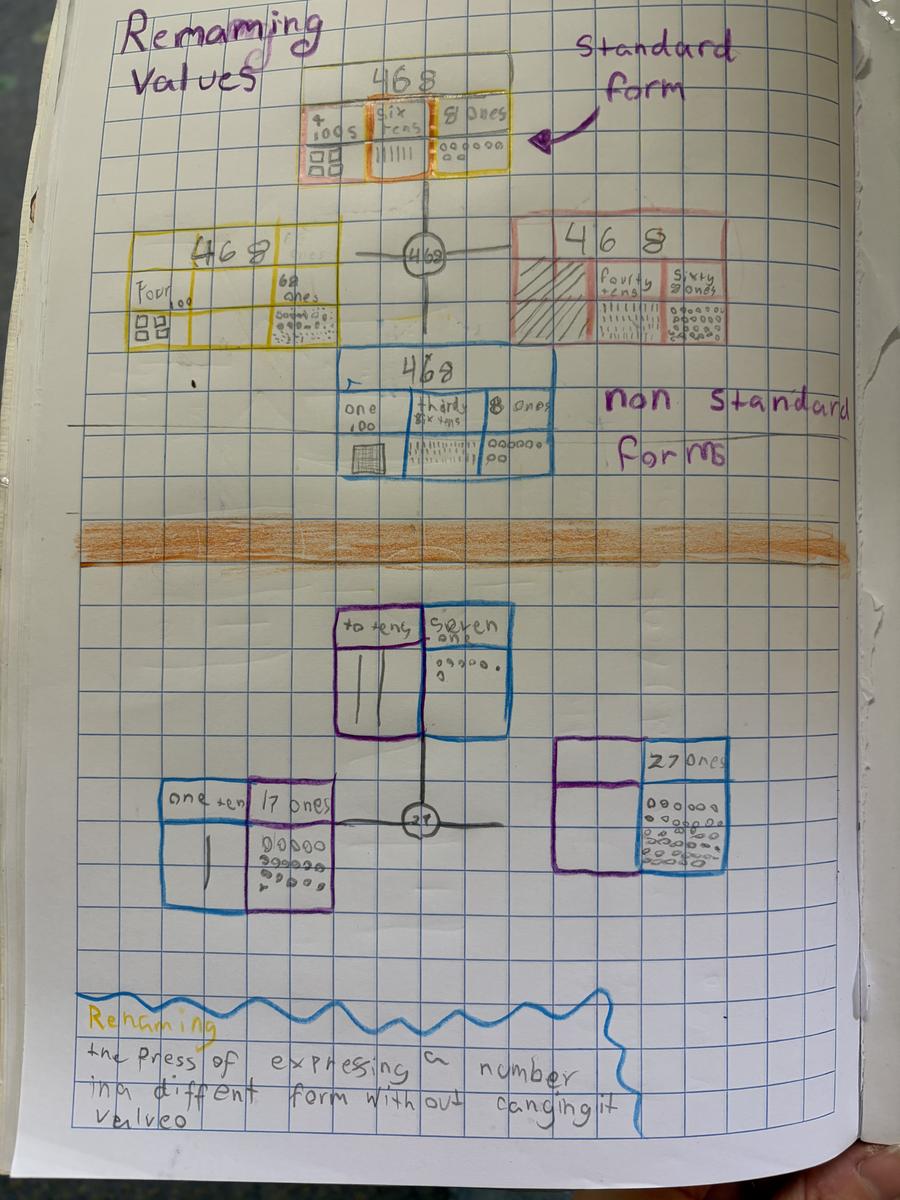 Remaming
Values
Standard
form
468
4
100s
six
tens
8 ones
468
468
Four
100
68
ones
468
fourty
tens
Sixty
8 ones
468
one
100
thardy
six tens
8 ones
non standard
forms
to tens
seven
one
27 ones
one ten
17 ones
27
Renaming
the Press of expressing a number
in a diffent form without canging it
valveo